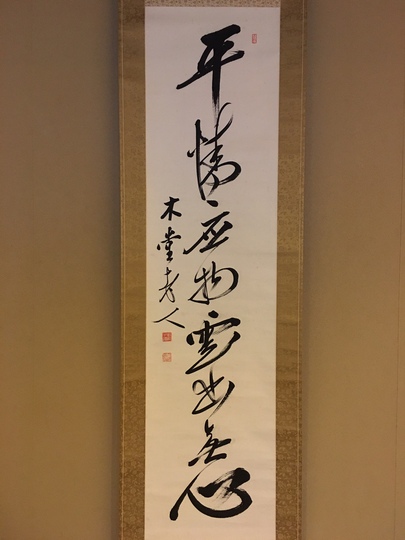 平情應物雲出無心
木堂老人